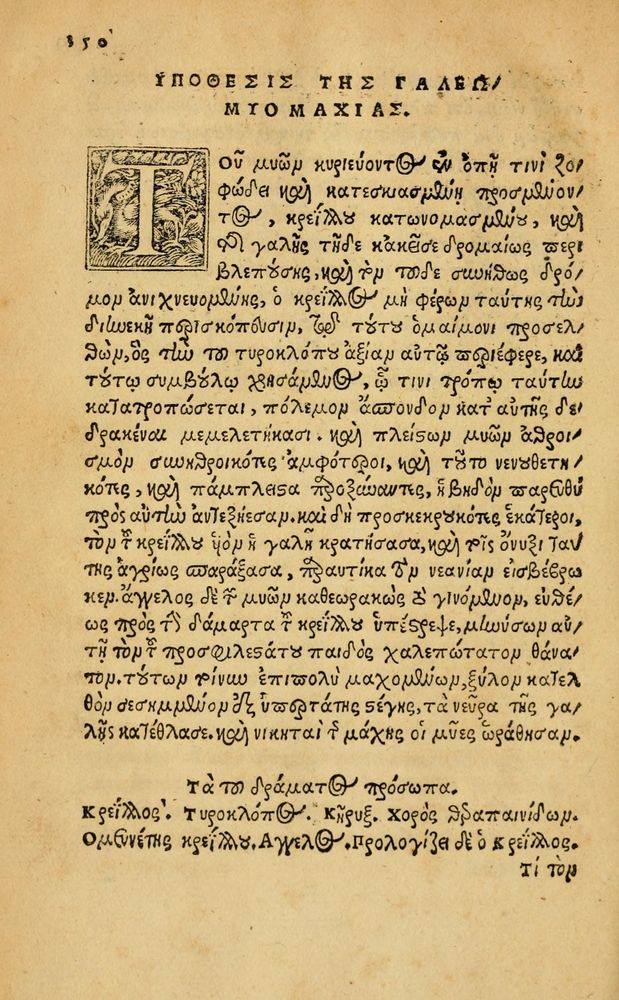 350
ΥΠΟΘΕΣΙΣ ΤΗΣ ΓΑΛΕΩ/
ΜΥΟΜΑΧΙΑΣ.
ΤΟΥ͂ μυῶν κυριεύοντος ἐν ὀπῇ τινὶ ζο/
φώδει καὶ κατεσκιασμένῃ προσμένον/
τος, κρεΐλλου κατωνομασμένου, καὶ
γαλῆς τῇδε κἀκεῖσε δρομαίως περι
βλεπούσης, καὶ τὸν τοῦδε συνήθως δρό/
μον ἀνιχνευομένης, ὁ κρεΐλλος μὴ φέρων ταύτης τὴν
διηνεκῆ περισκόπευσιν, τούτου ὁμαίμονι προσελ/
θὼν, ὃς τὴν τοῦ τυροκλόπου ἀξίαν αὐτῷ περιέφερε, καὶ
τούτῳ συμβούλῳ χρησάμενος, ᾧ τινι τρόπῳ ταύτην
κατατροπώσεται, πόλεμον ἄσπονδον κατ' αὐτῆς δε/
δρακέναι μεμελετήκασι. καὶ πλείστων μυῶν ἀθροι/
σμὸν συνηθροικότες ἀμφότεροι, καὶ τοῦτο νενουθετη/
κότες, καὶ πάμπλειστα προξύναντες, ἡβηδὸν παρευθὺ
πρὸς αὐτὴν ἀντεξῄεσαν. καὶ δὴ προσκεκρουκότες ἑκάτεροι,
τὸν τοῦ κρεΐλλου υἱὸν ἡ γαλῆ κρατήσασα, καὶ τοῖς ὄνυξι ταύ/
της ἀγρίως σπαράξασα, παραυτίκα τὸν νεανίαν εἰσβέβρω
κεν. ἄγγελος δὲ τῶν μυῶν καθεωρακὼς τὸ γινόμενον, εὐθέ/
ως πρὸς τὴν δάμαρτα τοῦ κρεΐλλου ὑπέστρεψε, μηνύσων αὐ/
τῇ τὸν τοῦ προσφιλεστάτου παιδὸς χαλεπώτατον θάνα/
τον. τούτων γοῦν ἐπιπολὺ μαχομένων, ξύλον κατελ
θὸν σεσημμένον ἐξ ὑπερτάτης στέγης, τὰ νεῦρα τῆς γα/
λῆς κατέθλασε. καὶ νικηταὶ τῆς μάχης οἱ μῦες ὡράθησαν.
Τὰ τοῦ δράματος πρόσωπα.
Κρεΐλλος. Τυροκλόπος. Κῆρυξ. Χορὸς θεραπαινίδων.
Ὁμευνέτης κρεΐλλου. Ἄγγελος. Προλογίζει δὲ ὁ κρεΐλλος.
Τί τὸν